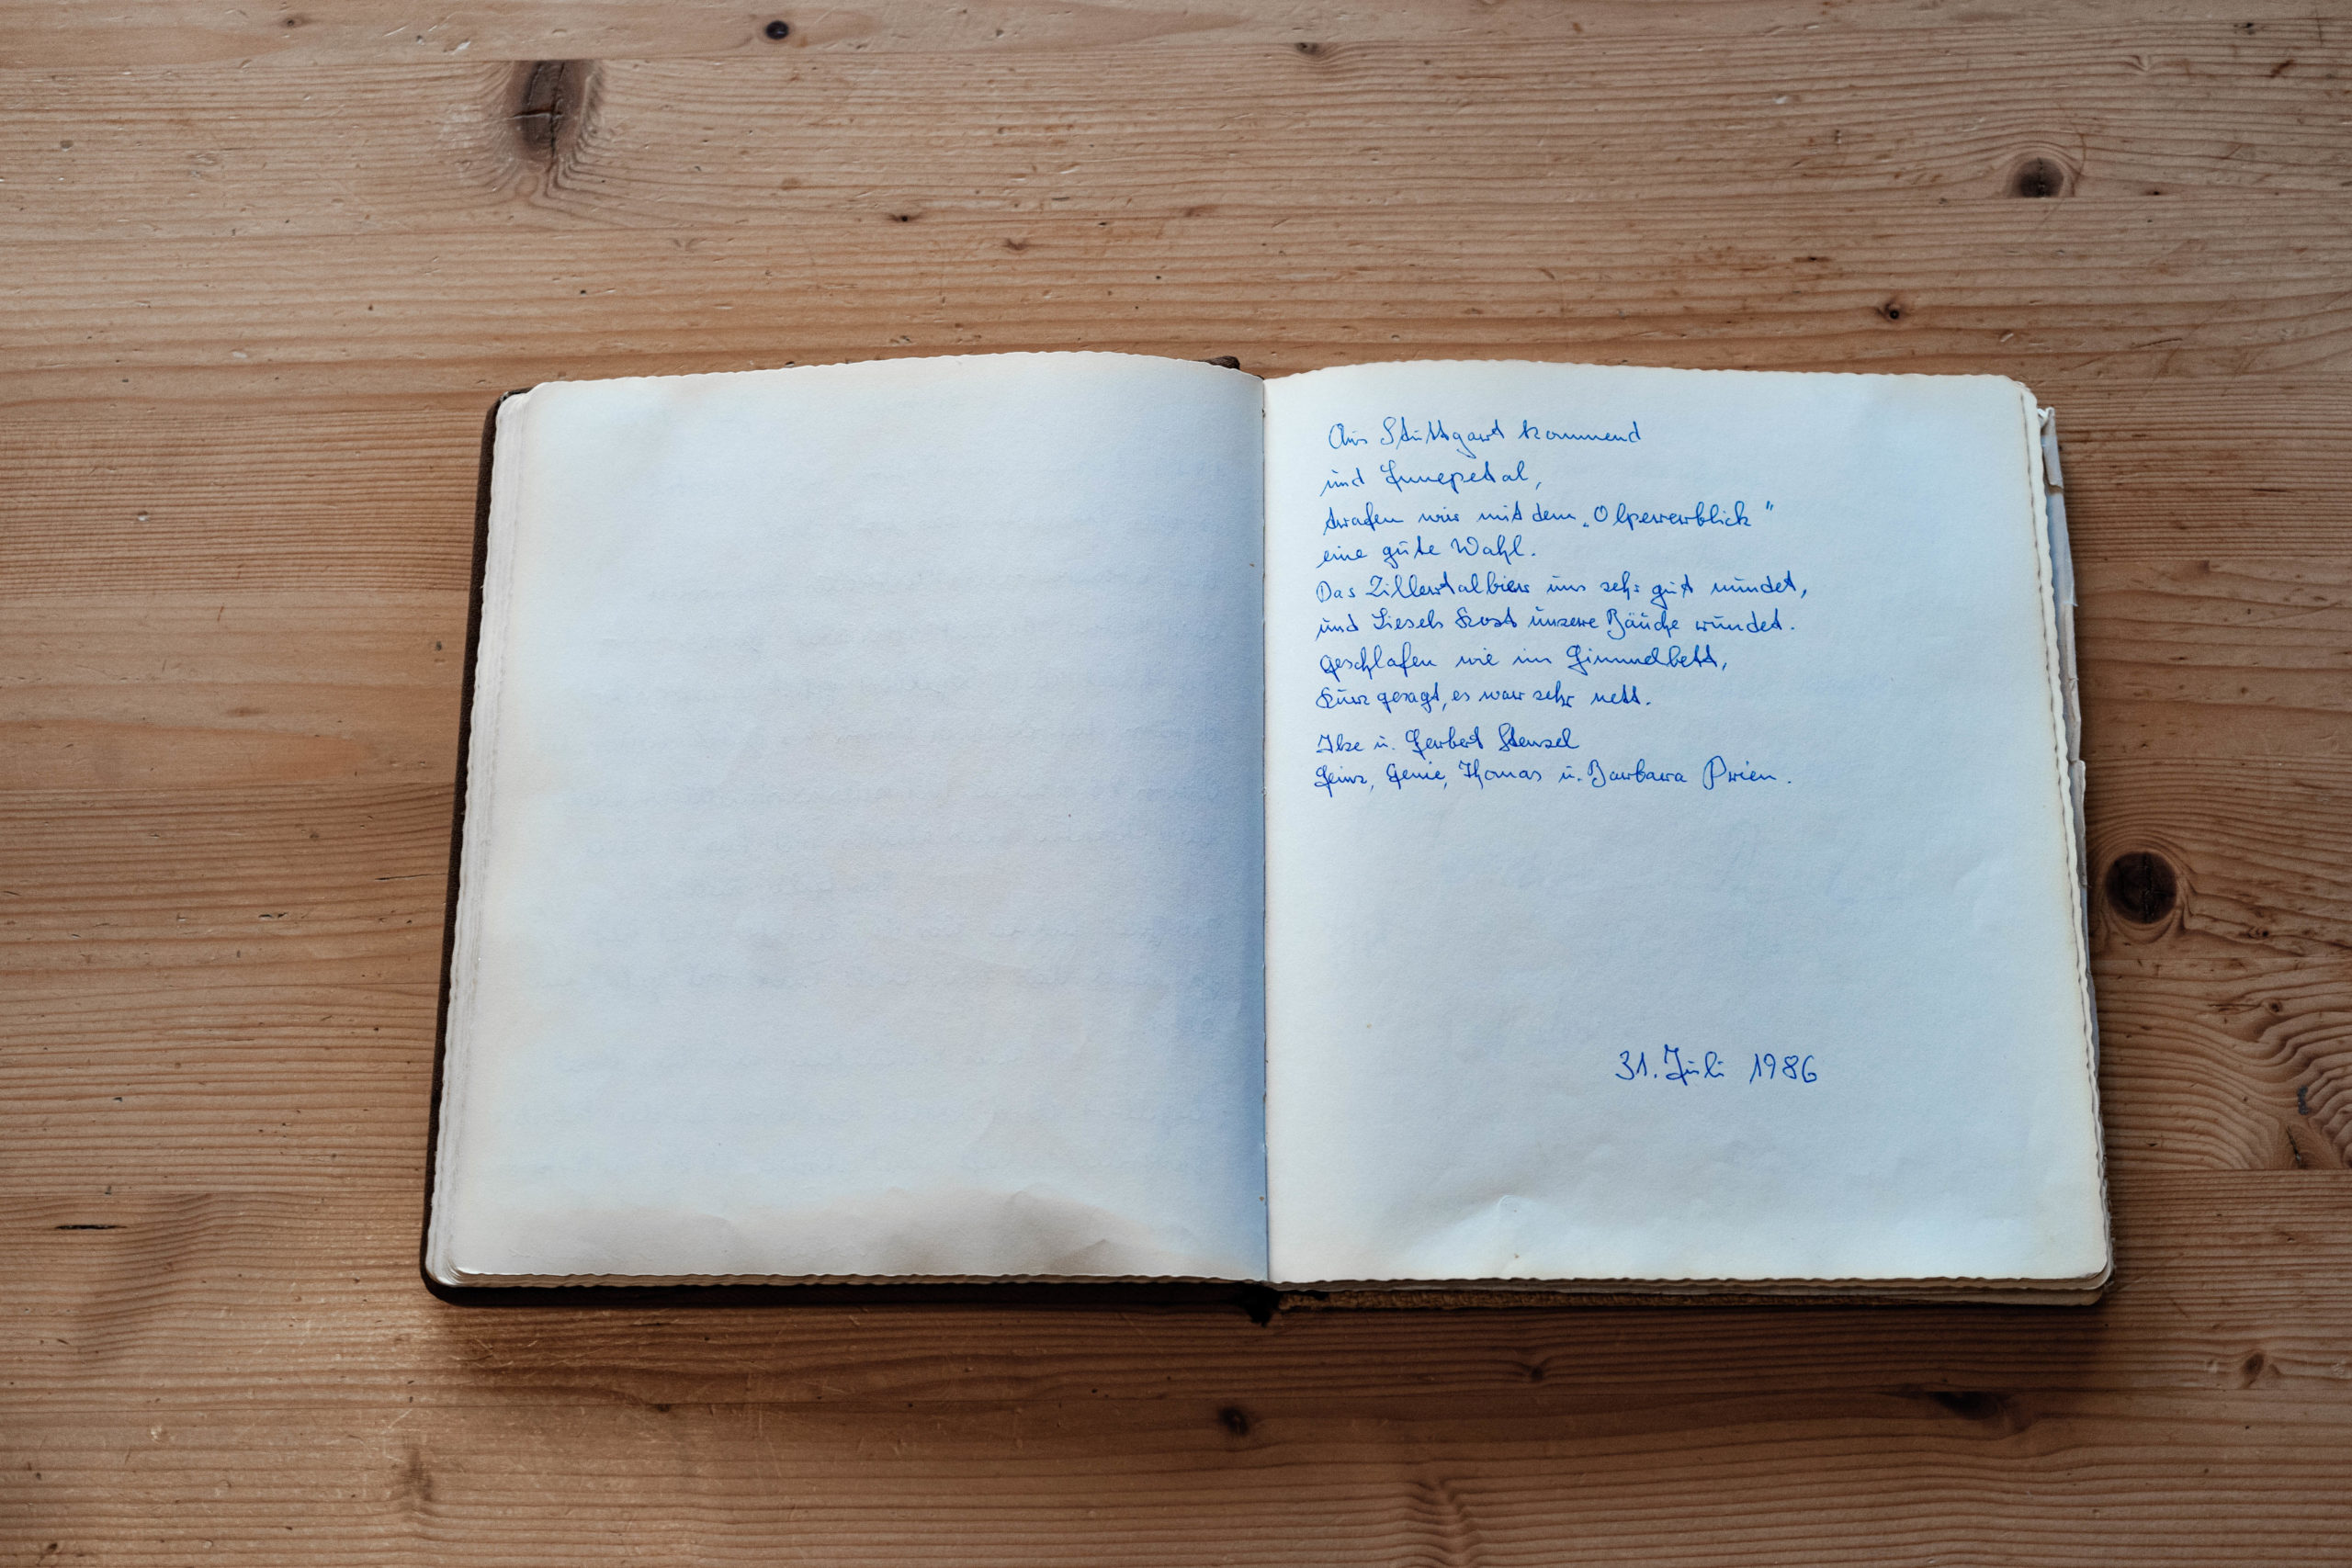 Aus Stuttgart kommend
und Ennepetal,
trafen wir mit dem „Olpererblick"
eine gute Wahl.
Das Zillertalbier uns sehr gut mundet,
und Liesels Kost unsere Bäuche rundet.
Geschlafen wie im Himmelbett,
Kurz gesagt, es war sehr nett.
Ilse u. Herbert Stenzel
Heinz, Henie, Thomas u. Barbara Prien.
31. Juli 1986